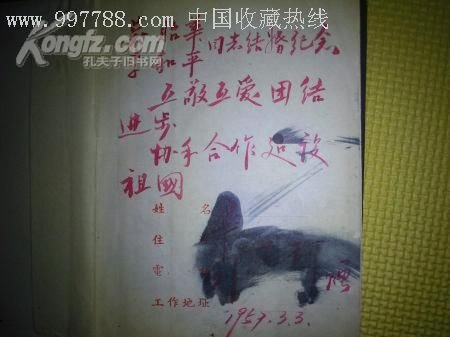 www.997788.com 中国收藏热线
Kongfz.com
孔夫子旧书网
和平
同志结婚纪念
互敬互爱团结
进步
协手合作建设
祖國
姓 名
住
電
工作地址
1957.3.3.